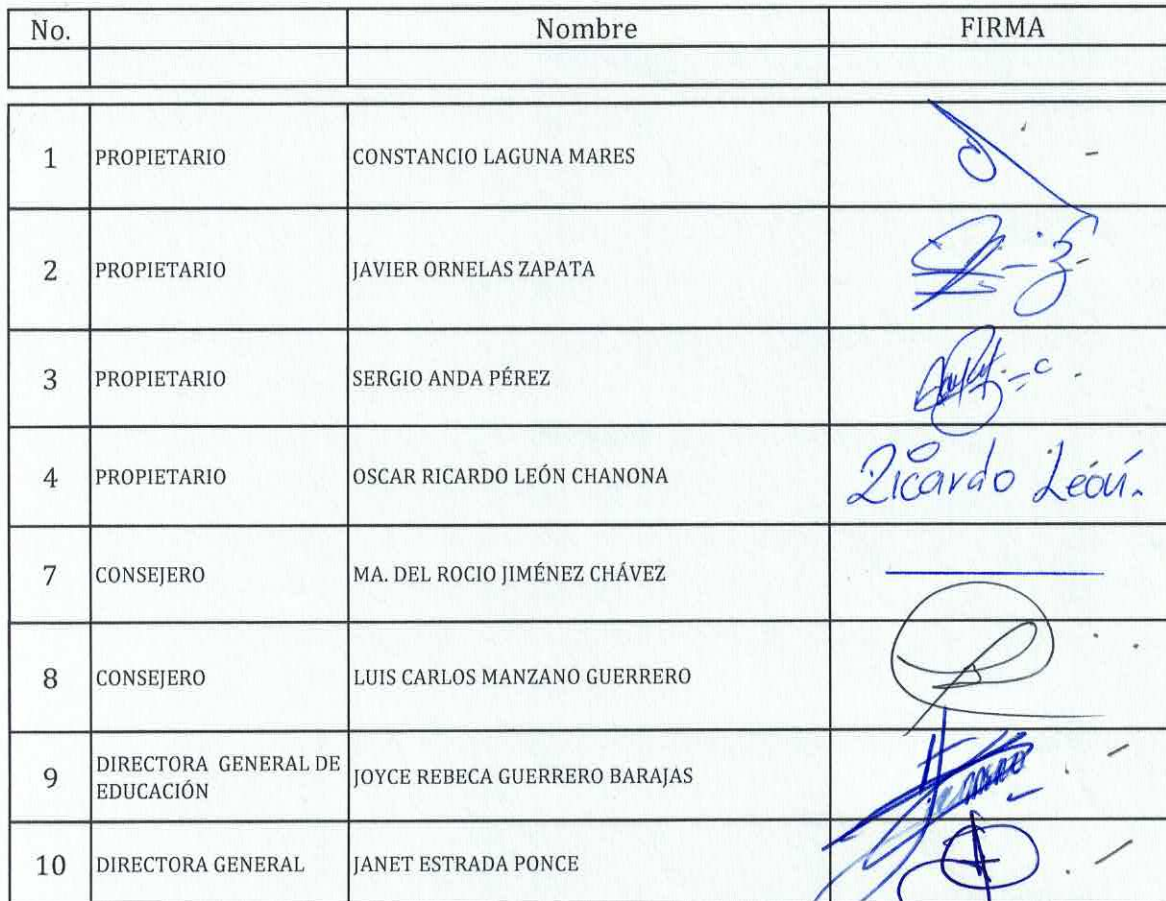 No. Nombre FIRMA
1 PROPIETARIO CONSTANCIO LAGUNA MARES
2 PROPIETARIO JAVIER ORNELAS ZAPATA
3 PROPIETARIO SERGIO ANDA PÉREZ
4 PROPIETARIO OSCAR RICARDO LEÓN CHANONA Ricardo León.
7 CONSEJERO MA. DEL ROCIO JIMÉNEZ CHÁVEZ
8 CONSEJERO LUIS CARLOS MANZANO GUERRERO
9 DIRECTORA GENERAL DE
EDUCACIÓN JOYCE REBECA GUERRERO BARAJAS
10 DIRECTORA GENERAL JANET ESTRADA PONCE